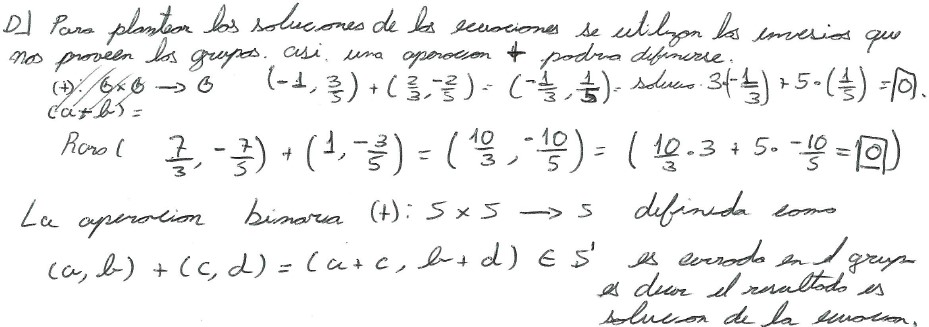 D] Para plantear las soluciones de las ecuaciones se utilizan los inversos que
nos proveen los grupos. asi. una operacion + podria definirse.
(+): G x G → G    (-1, 3/5) + (2/3, -2/5) = (-1/3, 1/5) = soluc 3·(-1/3) + 5·(1/5) = 0.
(a+b) =
Para ( 7/3, -7/5) + (1, -3/5) = (10/3, -10/5) = ( 10/3 · 3 + 5 · -10/5 = 0)
La operacion binaria (+): S x S → S definida como
(a, b) + (c, d) = (a+c, b+d) ∈ S es cerrada en el grupo
es decir el resultado es
solucion de la ecuacion.